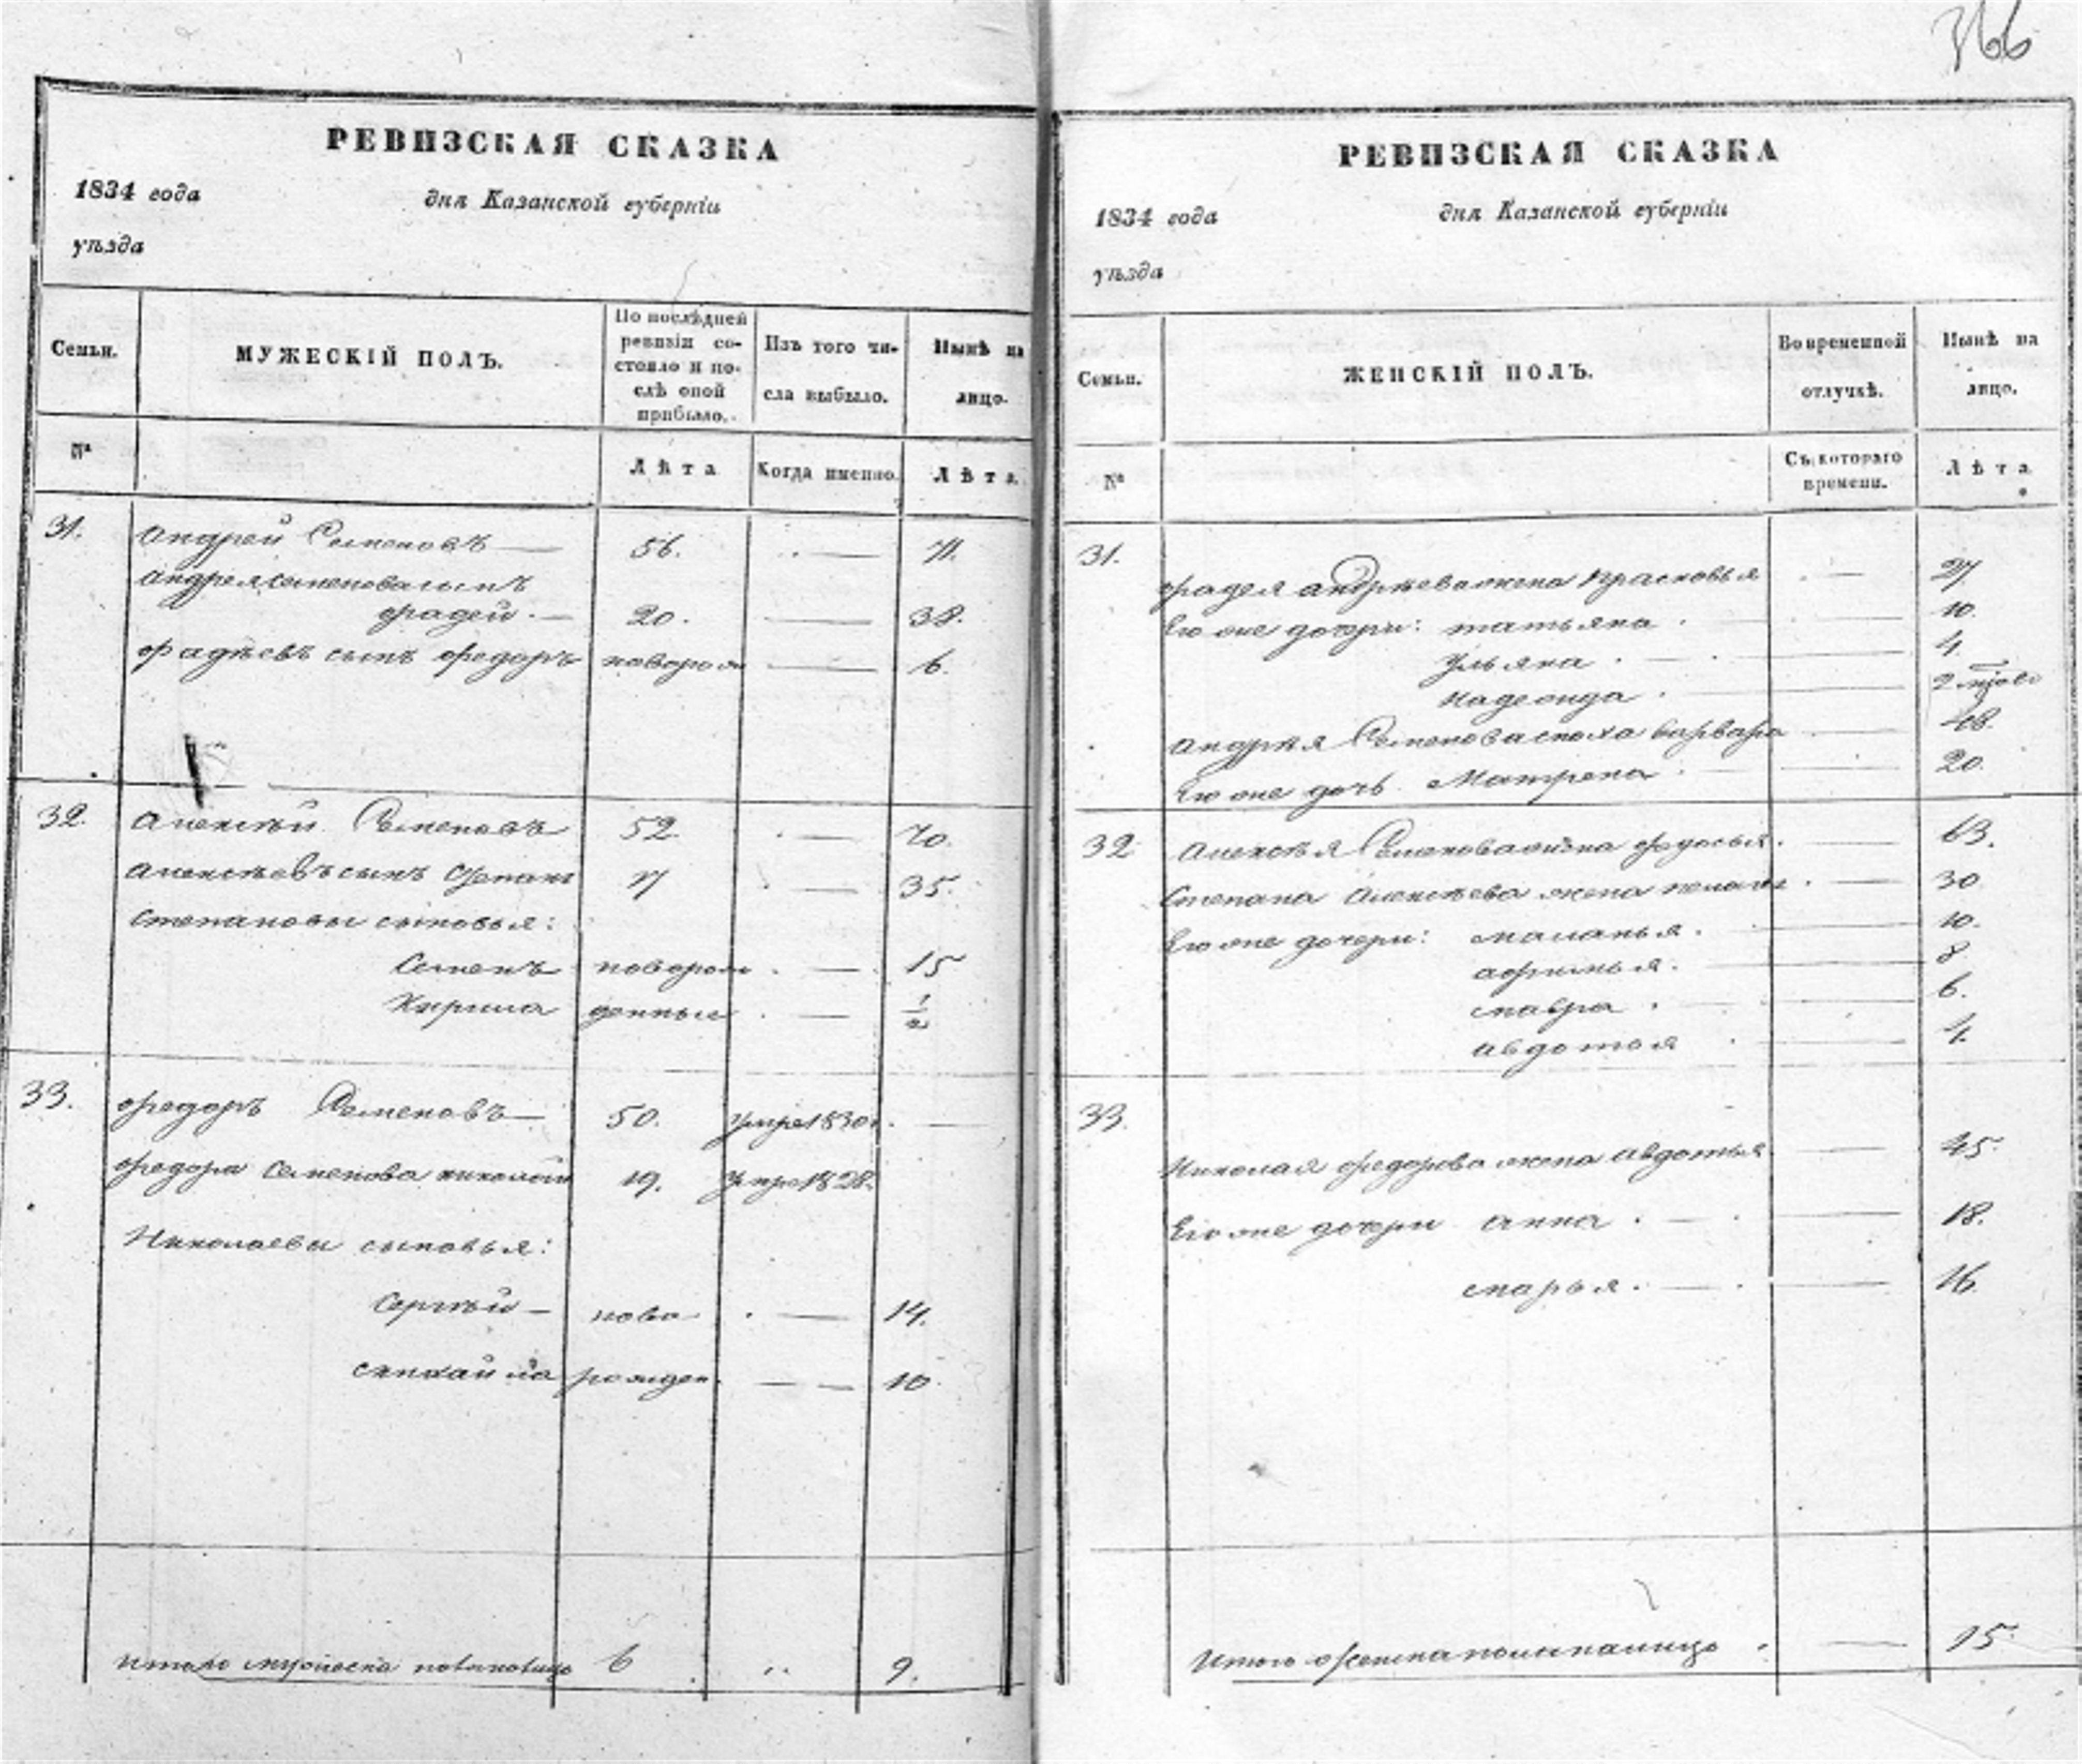 366
РЕВИЗСКАЯ СКАЗКА
1834 года дня Казанской губерніи
уѣзда
Семьи. МУЖЕСКІЙ ПОЛЪ. По послѣдней ревизіи состояло и послѣ оной прибыло. Изъ того числа выбыло. Нынѣ на лицо.
№ Лѣта Когда именно. Лѣта
31. Андрей Семеновъ — 56. — 71.
Андрея Семенова сынъ
фадей — 20. — 38.
фадѣевъ сынъ федоръ новорож — 6.
32. Алексѣй Семеновъ 52 — 70.
Алексѣевъ сынъ Степанъ 17 — 35.
Степановы сыновья:
Семенъ новорож — 15
Кирила денныи — 1/2
33. федоръ Семеновъ — 50. Умре 1830. —
федора Семенова николай 19. Умре 1828.
Николаевы сыновья:
Сергѣй — ново — 14.
михайла рожден — 10.
Итого мужеска пола налицо 6 " 9.
РЕВИЗСКАЯ СКАЗКА
1834 года дня Казанской губерніи
уѣзда
Семьи. ЖЕНСКІЙ ПОЛЪ. Во временной отлучкѣ. Нынѣ на лицо.
№ Съ котораго времени. Лѣта
31.
фадея андрѣева жена Прасковья — 27
Его же дочери: татьяна — 10.
Ульяна — 4.
надежда — 2
Андрѣя Семенова сноха варвара — 48.
Его же дочь Матрена — 20.
32. Алексѣя Семенова жена федосья — 63.
Степана Алексѣева жена — 30
Его же дочери: маланья — 10.
афимья — 8
мавра — 6.
авдотья — 4.
33.
Николая федорова жена авдотья — 45.
Его же дочери анна — 18.
марья — 16.
Итого женска пола налицо — 15.